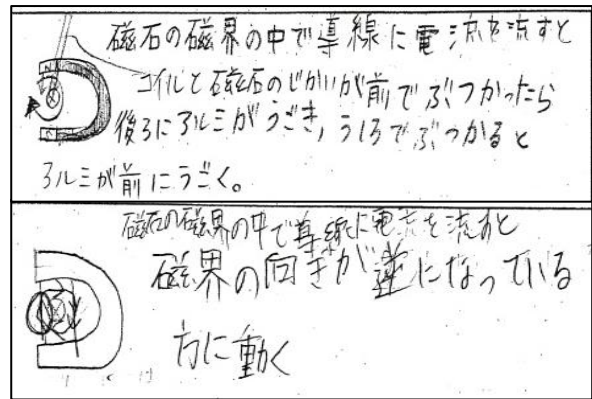 磁石の磁界の中で導線に電流を流すと
コイルと磁石のじかいが前でぶつかったら
後ろにアルミがうごき,うしろでぶつかると
アルミが前にうごく。
磁石の磁界の中で導線に電流を流すと
磁界の向きが逆になっている
方に動く